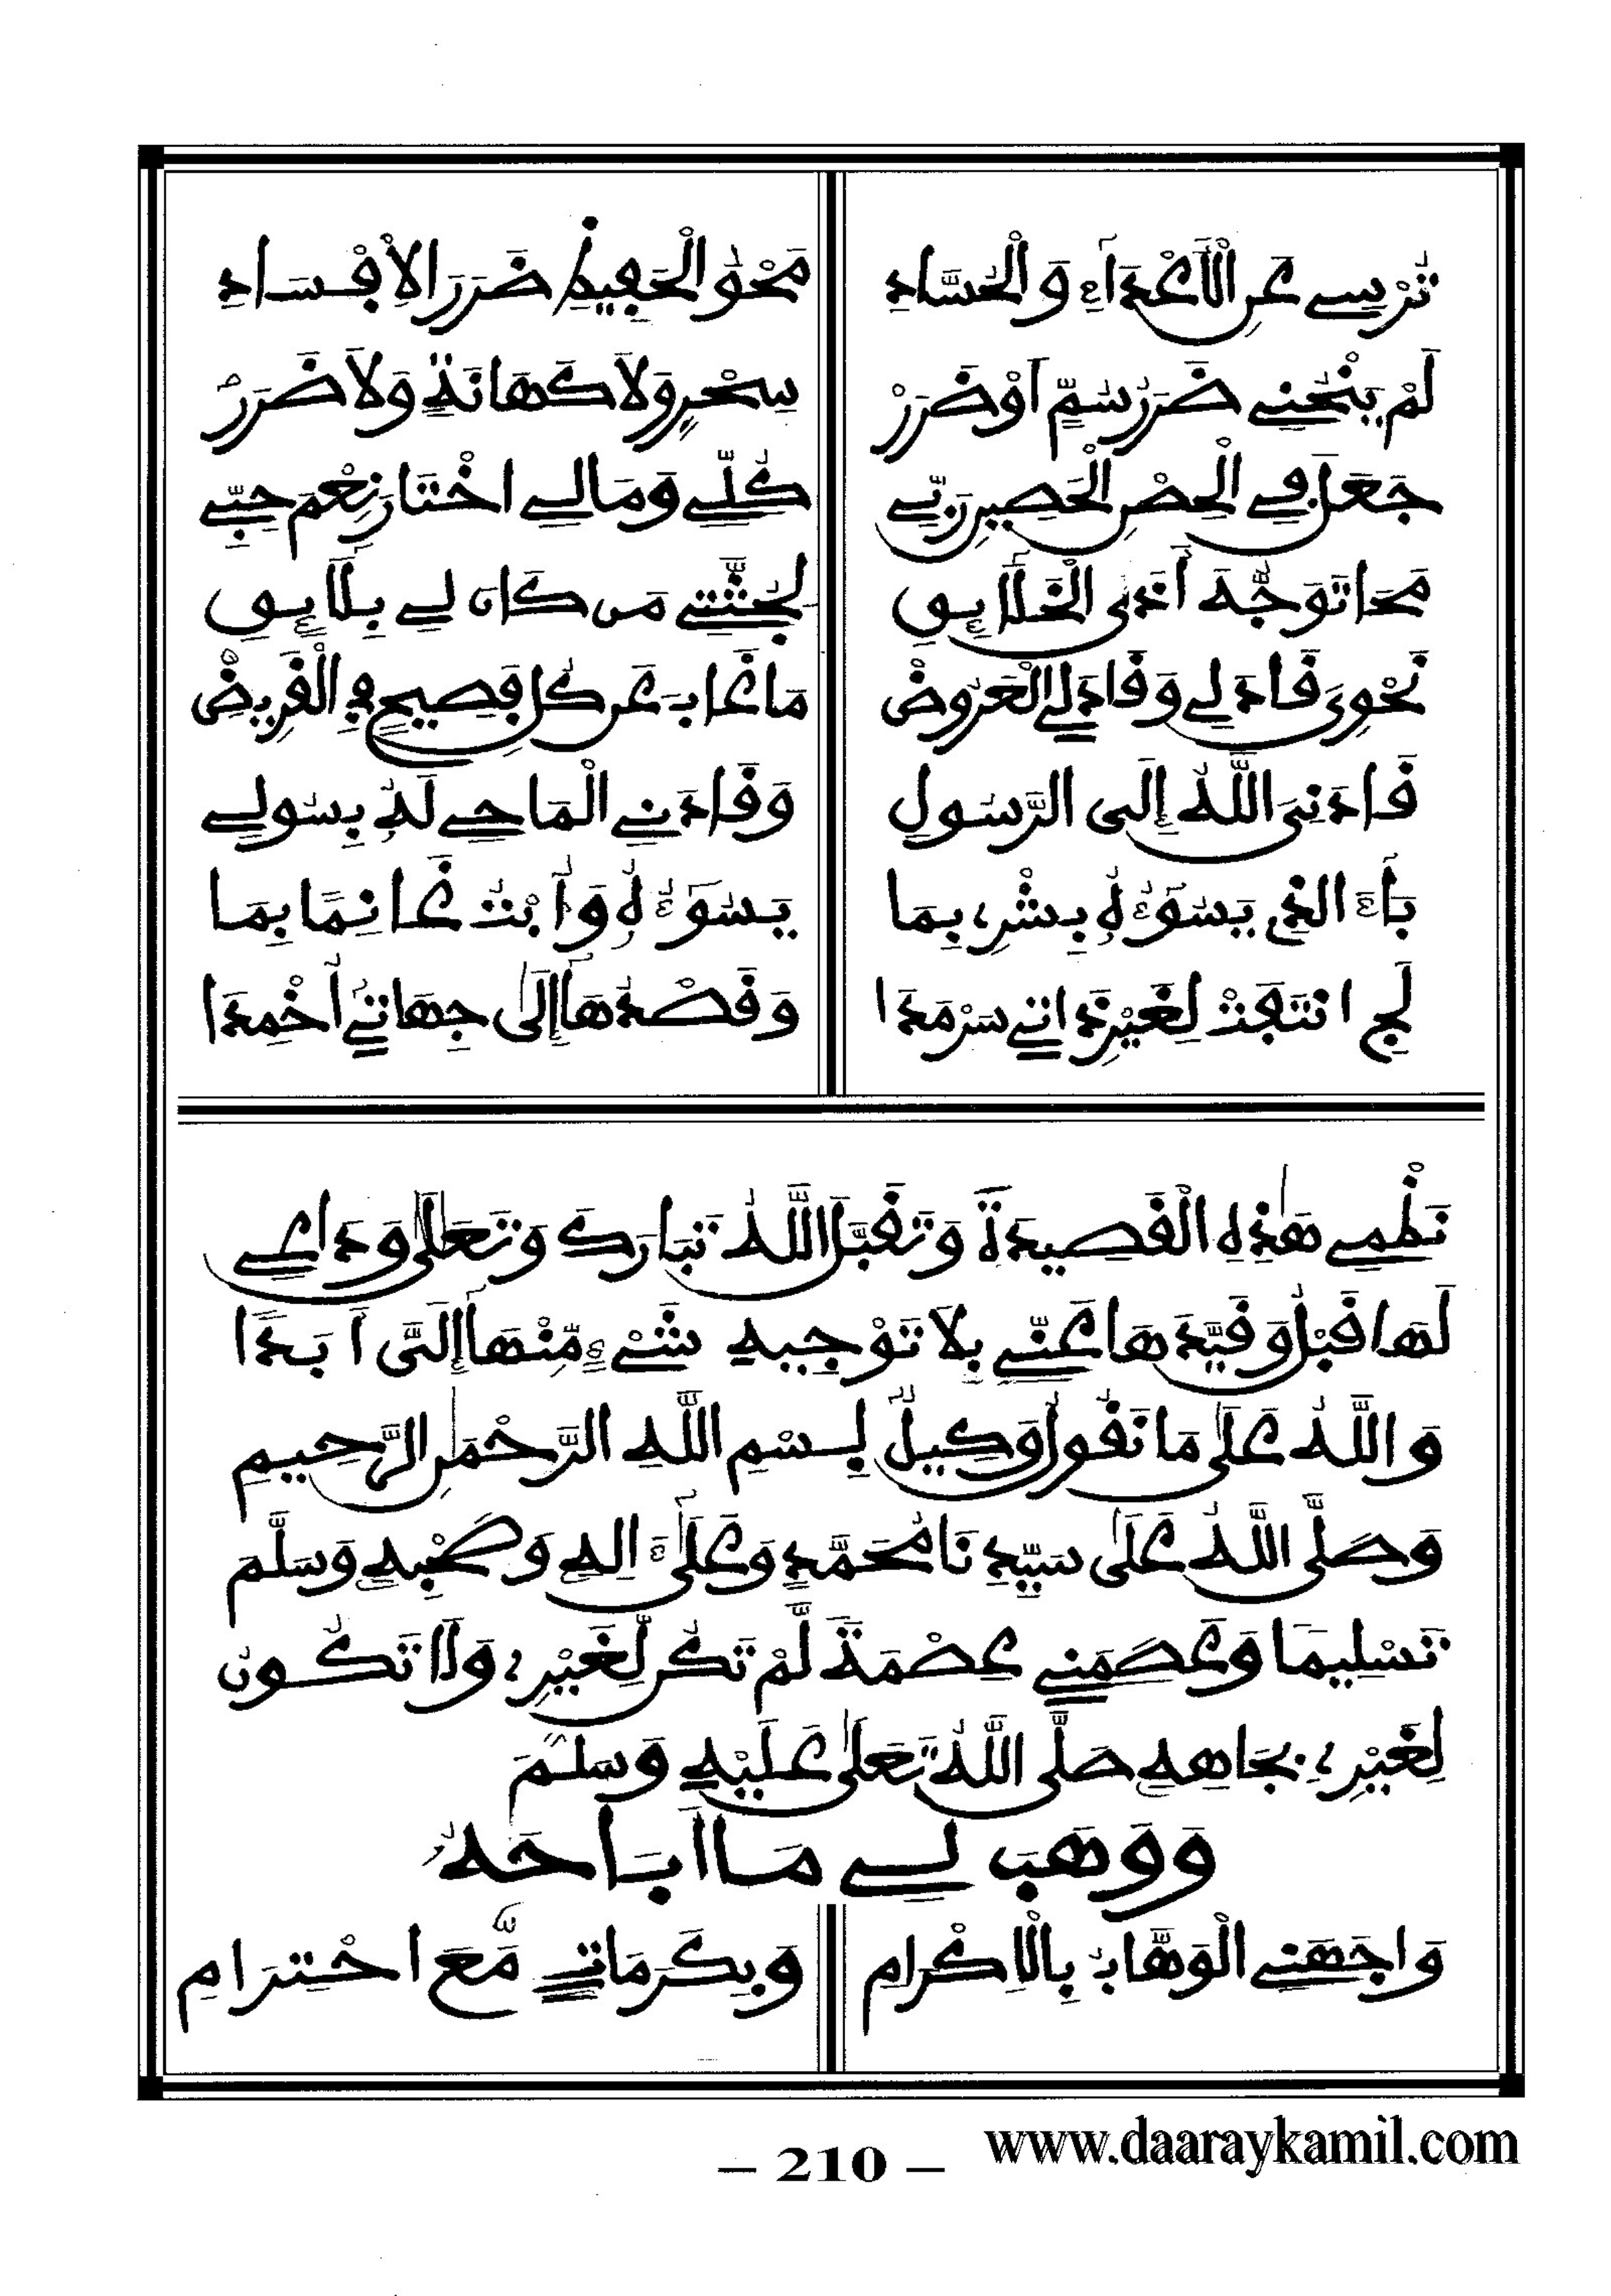 تُرْسِي عَنِ الْأَعْدَاءِ وَالْحُسَّادِ مَحْوُ الْحَفِيظِ ضَرَرَ الْإِفْسَادِ
لَمْ يَنْحُنِي ضَرَرُ سُمٍّ اَوْ ضَرَرْ سِحْرٍ وَلَا كَهَانَةٌ وَلَا ضَرَرْ
جَعَلَ فِي الْحِصْنِ الْحَصِينِ رَبِّي كُلِّي وَمَالِي اخْتَارَ نِعْمَ حِبِّي
مَحَا تَوَجُّهَ أَذَى الْخَلَائِقِ لِجُثَّتِي مَن كَانَ لِي بِلَائِقِ
نَحْوِيَ قَادَ لِي وَقَادَ لِي الْعَرُوضْ مَا غَابَ عَن كُلِّ فَصِيحٍ فِي الْقَرِيضْ
قَادَنِيَ اللَّهُ إِلَى الرَّسُولِ وَقَادَنِي الْمَاحِي لَهُ بِسُولِي
بَاءَ الذِي يَسُوءُهُ بِشْرِي بِمَا يَسُوءُهُ وَأُبْتُ غَانِمًا بِمَا
انتَفَتْ لِغَيْرِ ذَاتِي سَرْمَدَا وَقَصْدُهَا إِلَى جِهَاتِي أُخْمِدَا
نَظْمِي هَٰذِهِ الْقَصِيدَةَ وَتَقَبَّلَ اللَّهُ تَبَارَكَ وَتَعَالَى وَدَاعِي
لَهَا قَبْلُ وَقَيَّدَهَا عَنِّي بِلَا تَوْجِيهِ شَيْءٍ مِّنْهَا إِلَيَّ أَبَدًا
وَاللَّهُ عَلَىٰ مَا نَقُولُ وَكِيلٌ بِسْمِ اللَّهِ الرَّحْمَٰنِ الرَّحِيمِ
وَصَلَّى اللَّهُ عَلَىٰ سَيِّدِنَا مُحَمَّدٍ وَعَلَىٰ ءَالِهِ وَصَحْبِهِ وَسَلَّمَ
تَسْلِيمًا وَعَصَمَنِي عِصْمَةً لَّمْ تَكُن لِّغَيْرِي وَلَا تَكُونُ
لِغَيْرِي بِجَاهِهِ صَلَّى اللَّهُ تَعَالَىٰ عَلَيْهِ وَسَلَّمَ
وَوَهَبَ لِي مَا أَبَاحَهُ
وَاجَهَنِي الْوَهَّابُ بِالْإِكْرَامِ وَبِكَرَمَاتٍ مَّعَ احْتِرَامِ
www.daaraykamil.com
– 210 –